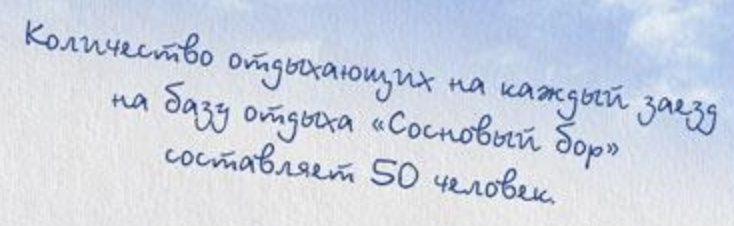 Количество отдыхающих на каждый заезд
на базу отдыха «Сосновый бор»
составляет 50 человек.